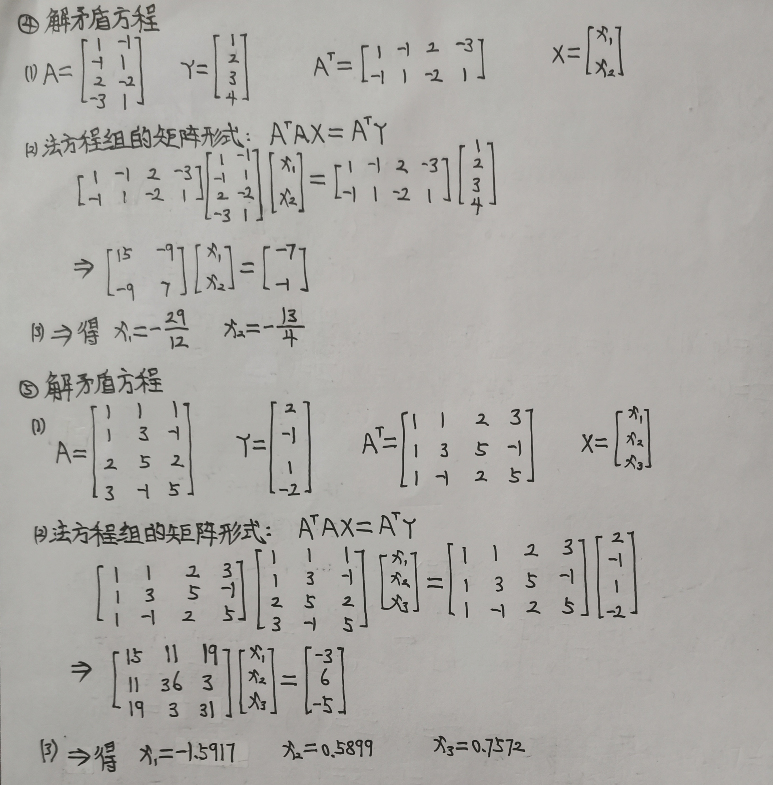 ④ 解矛盾方程
(1) A=[1 -1; -1 1; 2 -2; -3 1] Y=[1; 2; 3; 4] Aᵀ=[1 -1 2 -3; -1 1 -2 1] X=[x₁; x₂]
(2) 法方程组的矩阵形式: AᵀAX=AᵀY
[1 -1 2 -3; -1 1 -2 1][1 -1; -1 1; 2 -2; -3 1][x₁; x₂]=[1 -1 2 -3; -1 1 -2 1][1; 2; 3; 4]
⇒ [15 -9; -9 7][x₁; x₂]=[-7; -1]
(3) ⇒得 x₁=-29/12 x₂=-13/4
⑤ 解矛盾方程
(1) A=[1 1 1; 1 3 -1; 2 5 2; 3 -1 5] Y=[2; -1; 1; -2] Aᵀ=[1 1 2 3; 1 3 5 -1; 1 -1 2 5] X=[x₁; x₂; x₃]
(2) 法方程组的矩阵形式: AᵀAX=AᵀY
[1 1 2 3; 1 3 5 -1; 1 -1 2 5][1 1 1; 1 3 -1; 2 5 2; 3 -1 5][x₁; x₂; x₃]=[1 1 2 3; 1 3 5 -1; 1 -1 2 5][2; -1; 1; -2]
⇒ [15 11 19; 11 36 3; 19 3 31][x₁; x₂; x₃]=[-3; 6; -5]
(3) ⇒得 x₁=-1.5917 x₂=0.5899 x₃=0.7572